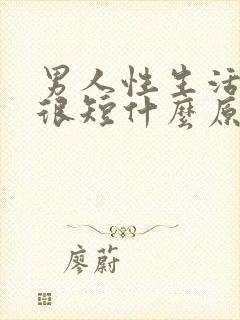 男人性生活
很短什麼原
廖蔚